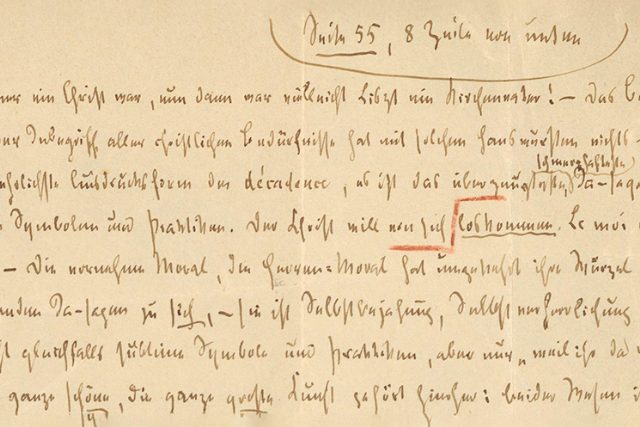 Seite 55, 8 Zeile von unten
ner ein Christ war, nun dann war vielleicht Liszt ein Kirchenvater! — Das B
der Inbegriff aller christlichen Bedürfnisse hat mit solchen Hanswürsten nichts
schmerzhafteste
ehrlichste Ausdrucksform der décadence, es ist das überzeugteste, Ja-sage
n Symbolen und Praktiken. Der Christ will von sich loskommen. Le moi
— Die vornehme Moral, die Herren-Moral hat umgekehrt ihre Wurzel
enden Ja-sagen zu sich, — sie ist Selbstbejahung, Selbstverherrlichung
ht gleichfalls sublime Symbole und Praktiken, aber nur „weil ihr da
ganze schöne, die ganze große Kunst gehört hierher: beider Wesen i